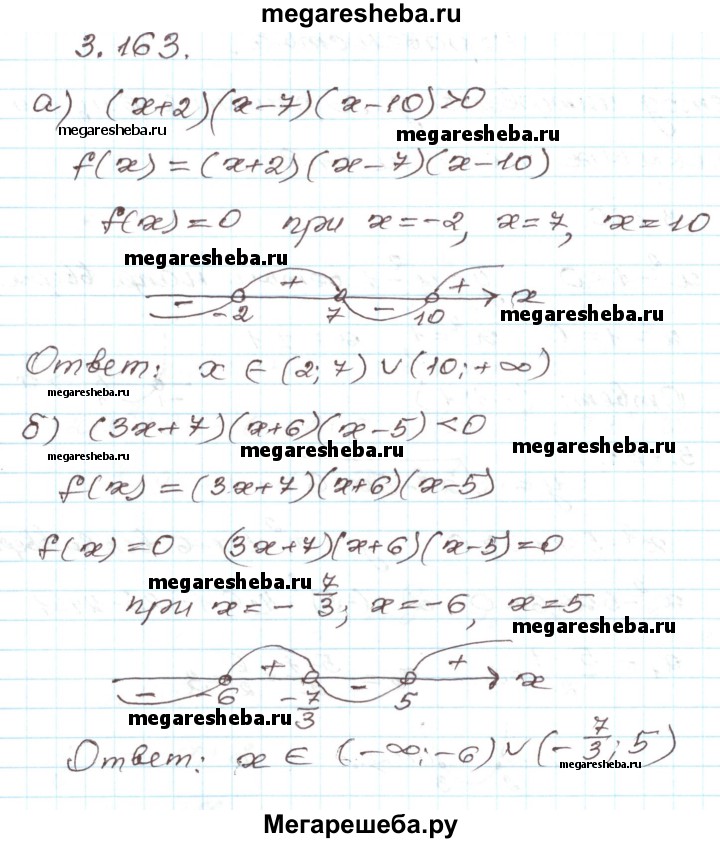 megaresheba.ru
3.163.
а) (x+2)(x-7)(x-10)>0
megaresheba.ru megaresheba.ru
f(x)=(x+2)(x-7)(x-10)
f(x)=0 при x=-2, x=7, x=10
megaresheba.ru
- + - + x
-2 7 10 megaresheba.ru
Ответ: x ∈ (2;7) ∪ (10;+∞)
megaresheba.ru
б) (3x+7)(x+6)(x-5)<0
megaresheba.ru megaresheba.ru megaresheba.ru
f(x)=(3x+7)(x+6)(x-5)
f(x)=0 (3x+7)(x+6)(x-5)=0
megaresheba.ru
при x=-7/3; x=-6, x=5
megaresheba.ru
- + - + x
-6 -7/3 5
megaresheba.ru
Ответ: x ∈ (-∞;-6) ∪ (-7/3; 5)
megaresheba.ru
Мегарешеба.ру